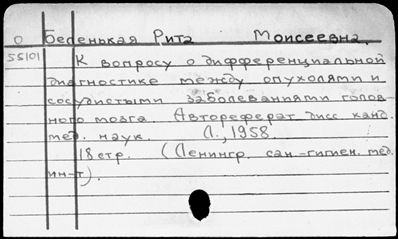 О Беленькая Рита Моисеевна.
55101 К вопросу о дифференциальной
диагностике между опухолями и
сосудистыми заболеваниями голов
ного мозга. Автореферат дисс. канд.
мед. наук. Л., 1958.
18 стр. (Ленингр. сан.-гигиен. мед.
ин-т).